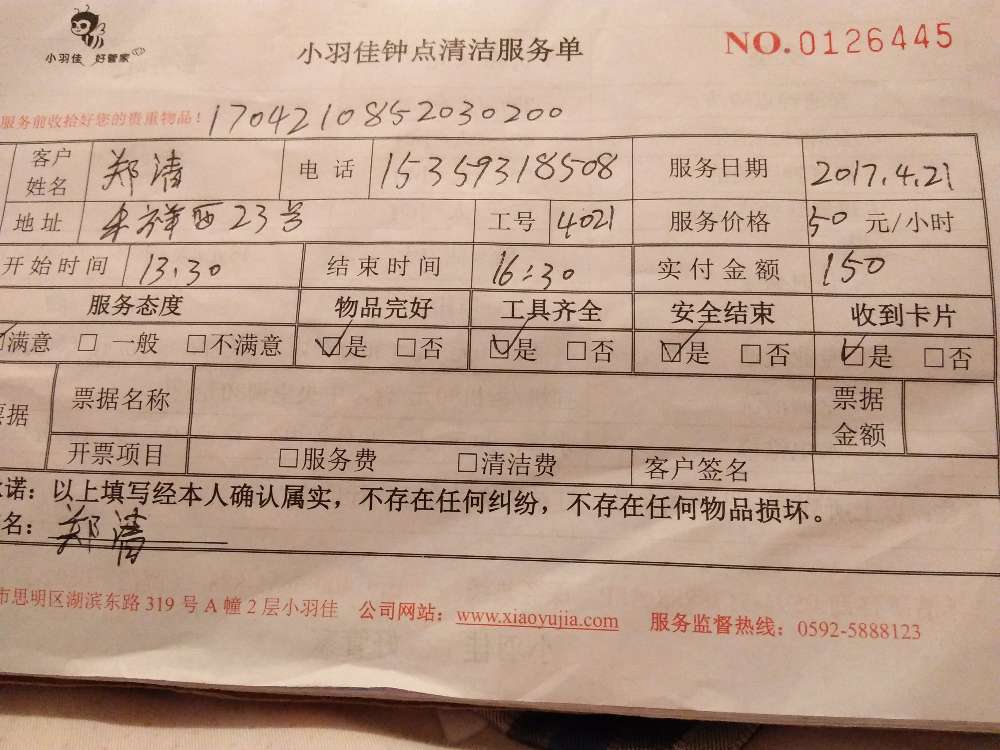 小羽佳 好管家
小羽佳钟点清洁服务单
NO.0126445
服务前收拾好您的贵重物品! 1704210852030200
客户姓名 郑清 电话 15359318508 服务日期 2017.4.21
地址 西23号 工号 4021 服务价格 50 元/小时
开始时间 13:30 结束时间 16:30 实付金额 150
服务态度 物品完好 工具齐全 安全结束 收到卡片
☑满意 □一般 □不满意 ☑是 □否 ☑是 □否 ☑是 □否 ☑是 □否
票据 票据名称 票据金额
开票项目 □服务费 □清洁费 客户签名
诺:以上填写经本人确认属实,不存在任何纠纷,不存在任何物品损坏。
名:郑清
市思明区湖滨东路 319 号 A 幢 2 层小羽佳 公司网站:www.xiaoyujia.com 服务监督热线:0592-5888123